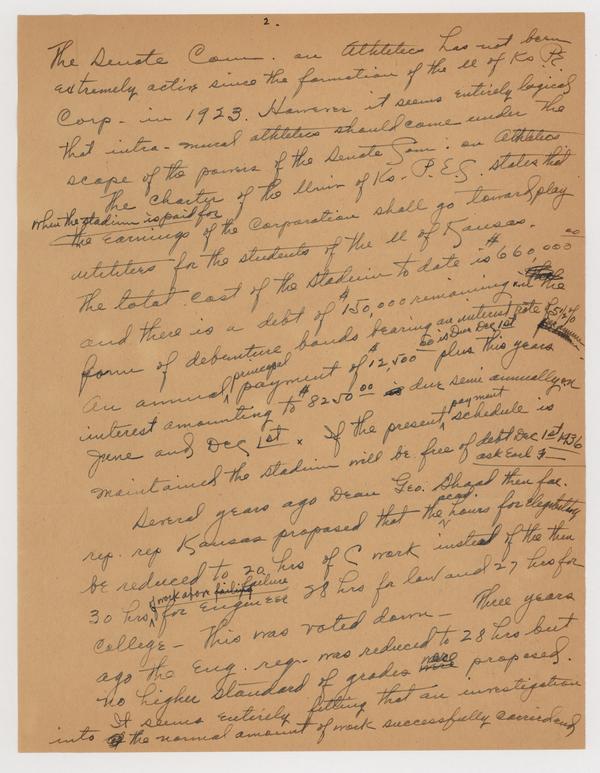 2.
The Senate Com. on Athletics has not been
extremely active since the formation of the U of Ks P.E.
Corp - in 1923. However it seems entirely logical
that intra-mural athletics should come under the
scope of the powers of the Senate Com. on Athletics
The Charter of the Univ of Ks. P.E.C. states that
when the stadium is paid for
the earnings of the Corporation shall go toward play
for the students of the U of Kansas.
The total cost of the Stadium to date is $660,000 00
and there is a debt of $150,000 remaining in the
form of debenture bonds bearing an interest rate of 5½%
An annual principal payment of $12,500 00 is due Dec 1st plus this years
interest amounting to $8250 00 due semi annually on
June and Dec 1st. If the present payment schedule is
maintained the stadium will be free of debt Dec 1st 1936
ask Earl F
Several years ago Dean Geo. then fac.
rep. rep Kansas proposed that the acad. hours for eligibility
be reduced to 20 hrs of C work instead of the then
30 hrs work above failing failure for Engineer 28 hrs for law and 27 hrs for
College - This was voted down - Three years
ago the Eng. reg. was reduced to 28 hrs but
no higher standard of grades were proposed.
It seems entirely fitting that an investigation
into the normal amount of work successfully carried and